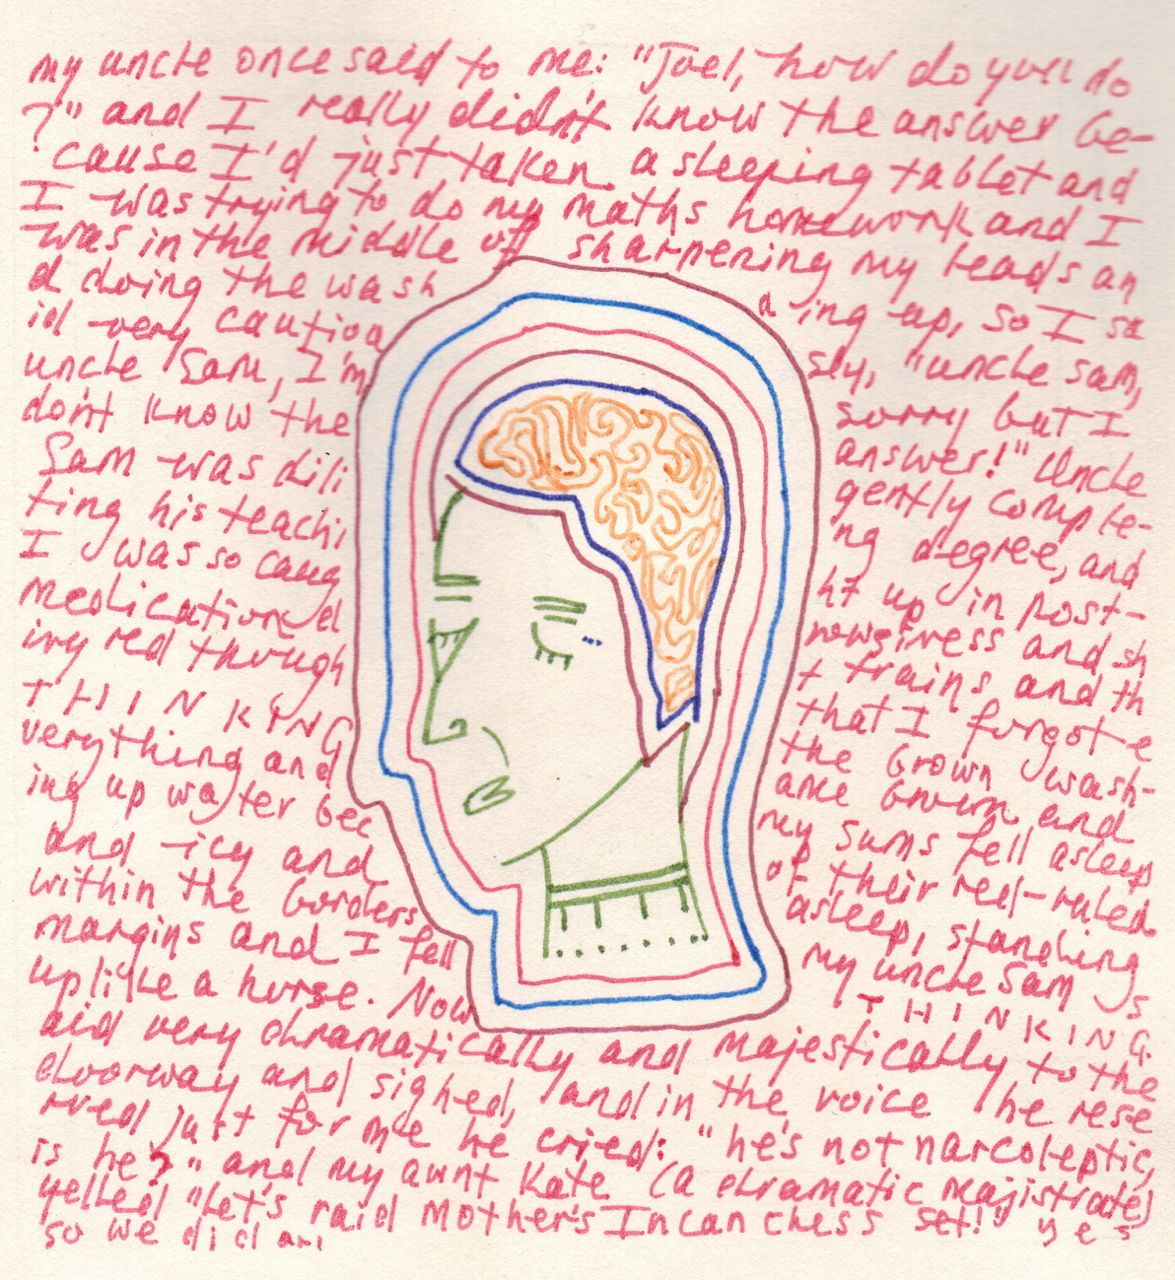 my uncle once said to me: "Joel, how do you do
?" and I really didn't know the answer be-
cause I'd just taken a sleeping tablet and
I was trying to do my maths homework and I
was in the middle of sharpening my leads an
d doing the wash ing up, so I sa
id very cautiou sly, "uncle sam,
uncle Sam, I'm sorry but I
don't know the answer!" Uncle
Sam was dili gently comple-
ting his teachi ng degree, and
I was so caug ht up in post-
medication el and sh
ivy red though t trains and th
THINKING that I forgot e
verything and the brown wash-
ing up water bec ame brown and
and icy and my sums fell asleep
within the borders of their red-ruled
margins and I fell asleep, standing
up like a horse. Now my uncle Sam s
THINKING.
aid very dramatically and majestically to the
doorway and sighed, and in the voice he rese
rved just for me he cried: "he's not narcoleptic,
is he?" and my awnt Kate (a dramatic majistrate)
yelled "let's raid Mother's Incan chess set!" yes
so we did an